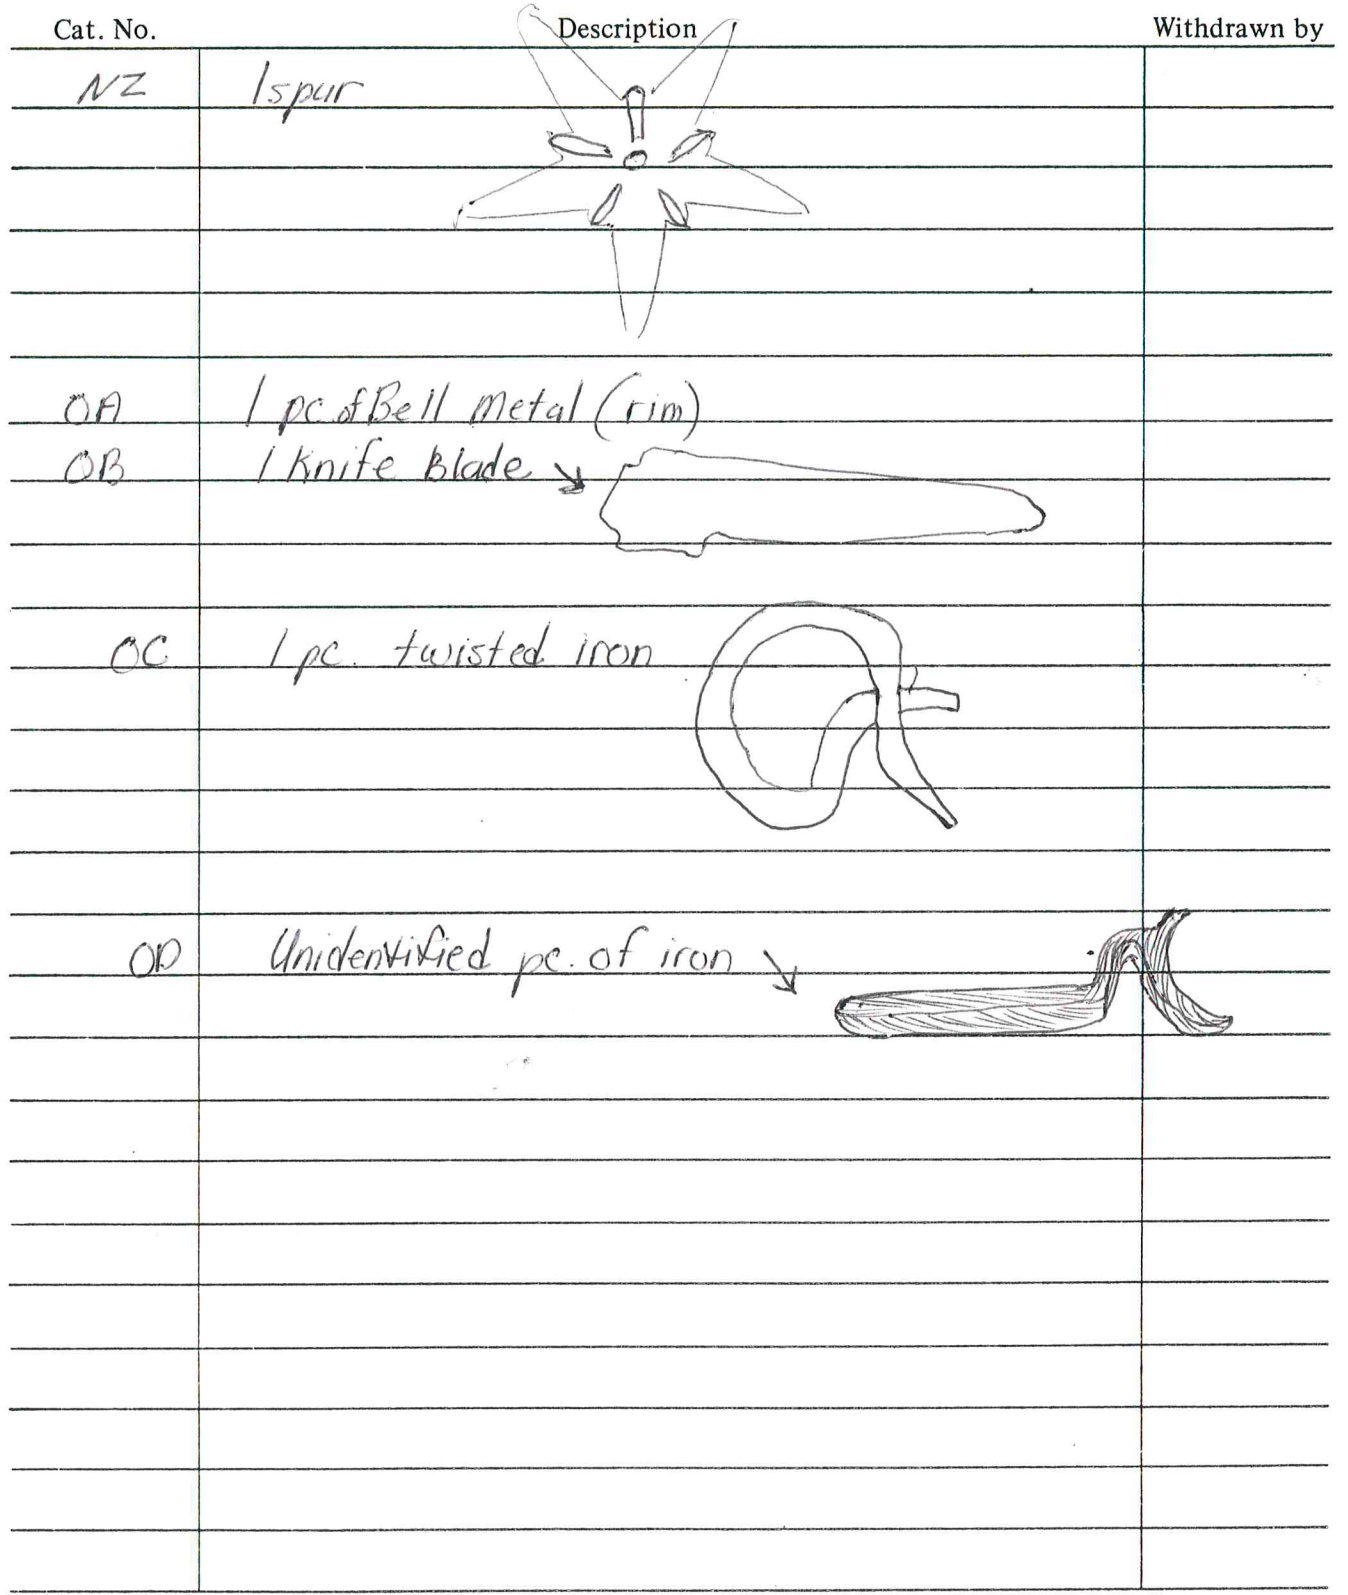 Cat. No. Description Withdrawn by
NZ 1 spur
OA 1 pc. of Bell Metal (rim)
OB 1 Knife Blade
OC 1 pc. twisted iron
OD Unidentified pc. of iron